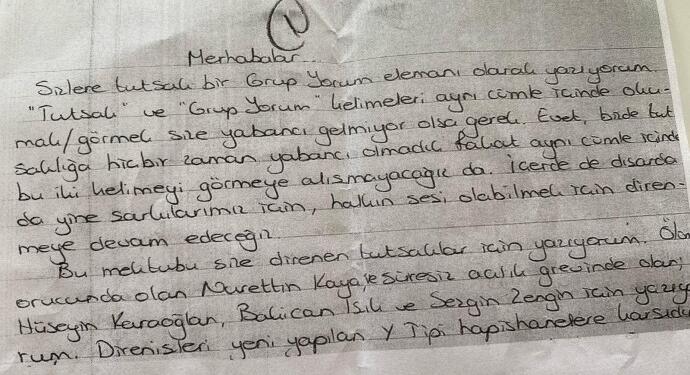 1
Merhabalar...
Sizlere tutsak bir Grup Yorum elemanı olarak yazıyorum.
"Tutsak" ve "Grup Yorum" kelimeleri aynı cümle içinde oku-
mak/görmek size yabancı gelmiyor olsa gerek. Evet, bizde tut
saklığa hiçbir zaman yabancı olmadık fakat aynı cümle içinde
bu iki kelimeyi görmeye alışmayacağız da. İçerde de dışarda
da yine şarkılarımız için, halkın sesi olabilmek için diren-
meye devam edeceğiz.
Bu mektubu size direnen tutsaklar için yazıyorum. Ölüm
orucunda olan Nurettin Kaya, ve süresiz açlık grevinde olan;
Hüseyin Karaoğlan, Bakican Işık ve Sezgin Zengin için yazıyo
rum. Direnişleri yeni yapılan Y Tipi hapishanelere karşıdır